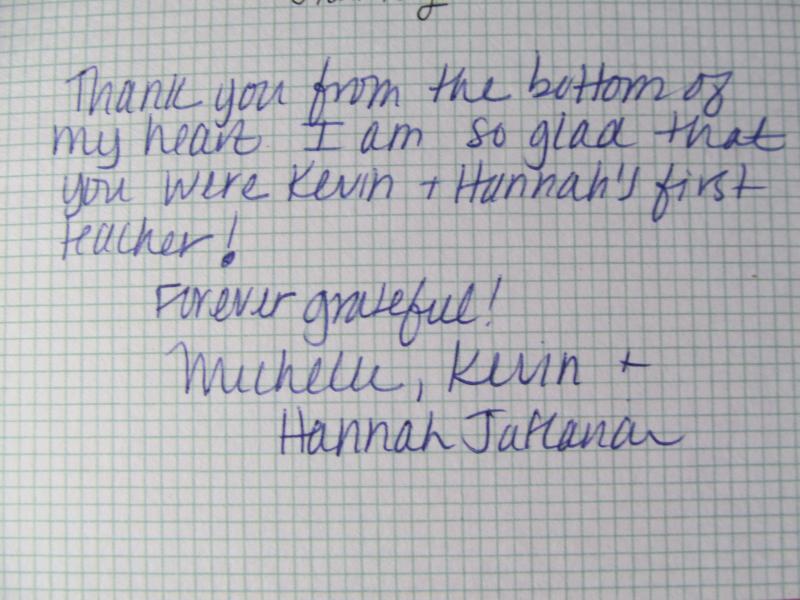 Thank you from the bottom of
my heart. I am so glad that
you were Kevin + Hannah's first
teacher!
Forever grateful!
Michelle, Kevin +
Hannah